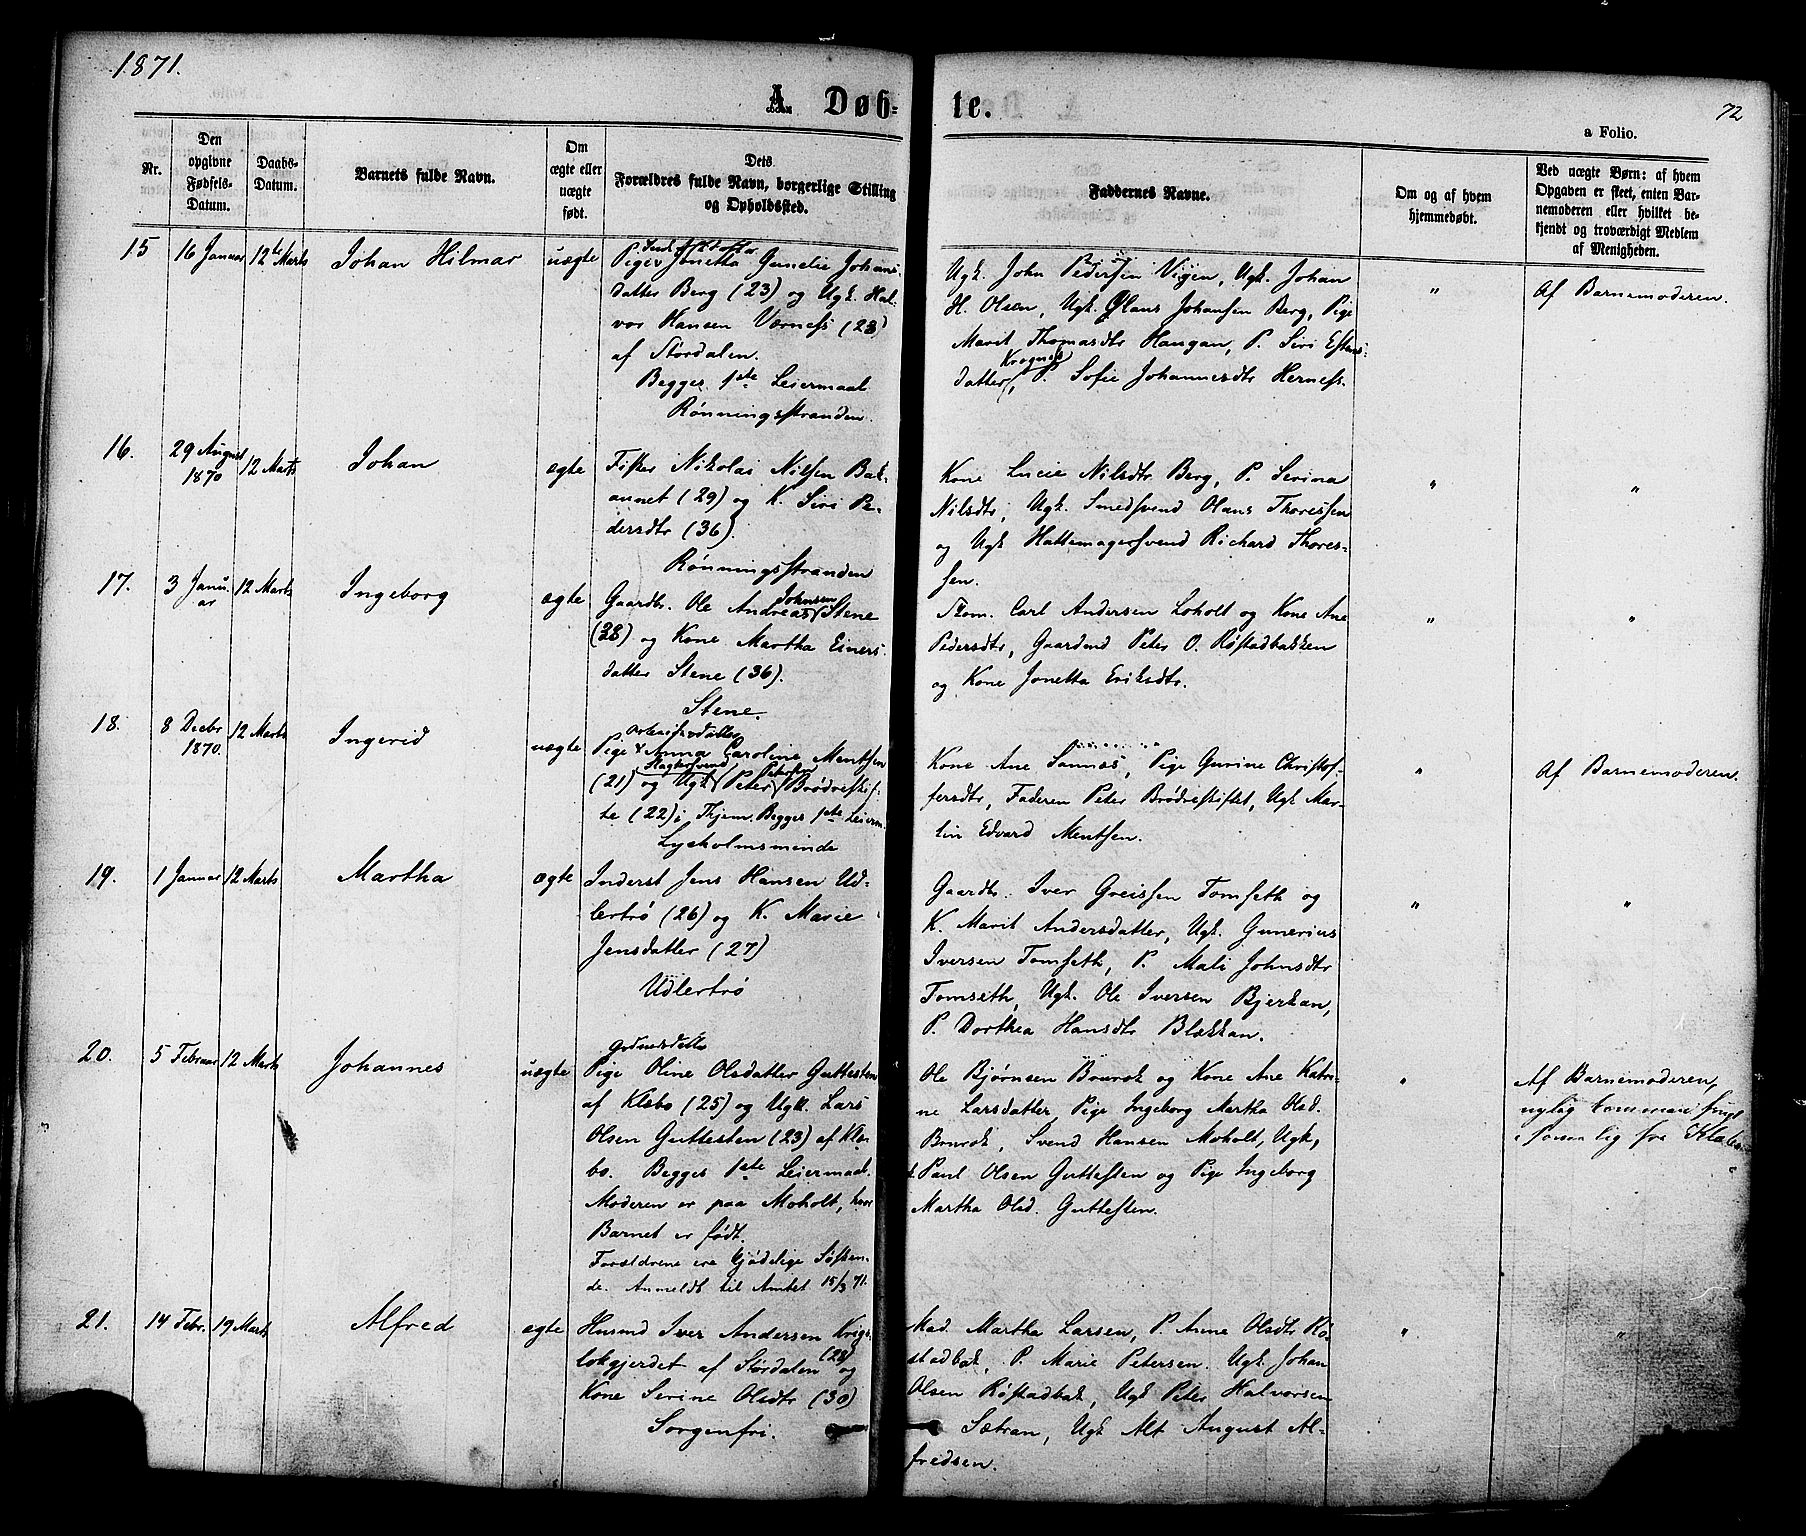 1871.
A. Døb-
te.
72
a Folio.
Nr.
Den opgivne Fødsels-Datum.
Daabs-Datum.
Barnets fulde Navn.
Om ægte eller uægte født.
Dets Forældres fulde Navn, borgerlige Stilling og Opholdssted.
Faddernes Navne.
Om og af hvem hjemmedøbt.
Ved uægte Børn: af hvem Opgaven er skeet, enten Barnemoderen eller hvilket bekjendt og troværdigt Medlem af Menigheden.
15 16 Januar 12te Marts Johan Hilmar uægte
Pige Jonetta Gunelie Johans-
datter Berg (23) og Ugk. Hal-
vor Hansen Værness (23)
af Størdalen.
Begges 1ste Leiermaal
Rønningsstranden.
Ugk. John Pedersen Vigen, Ugk. Johan
H. Olsen, Ugk. Olaus Johansen Berg, Pige
Marit Thomasdtr Haugan, P. Siri Estens-
datter Krognes, P. Sofie Johannesdtr Herness.
"
Af Barnemoderen.
16. 29 August 1870 12 Marts Johan ægte
Fisker Nikolai Nilsen Bak-
aunet (29) og K. Siri Pe-
dersdtr (36).
Rønningsstranden
Kone Lucie Nilsdtr Berg, P. Serina
Nilsdtr, Ugk. Smedsvend Olaus Thoressen
og Ugk Hattemagersvend Richard Thores-
sen.
"
"
17. 3 Janu-
ar 12 Marts Ingeborg ægte
Gaardbr. Ole Andreas Johnsen Stene
(38) og Kone Martha Einers-
datter Stene (36).
Stene.
Carl Andersen Loholt og Kone Ane
Pedersdtr, Gaardmd Peter O. Røstadbakken
og Kone Jonetta Eriksdtr.
"
"
18. 8 Decbr 1870. 12 Marts Ingerid uægte
Pige Anna Caroline Mentsen
(21) og Slagtersvend Ugk Peter Petersen Brødrestif-
te (22) i Thjem. Begges 1ste Leierm.
Lycholmsminde
Kone Ane Sannæs, Pige Gurine Christof-
fersdtr, Faderen Peter Brødrestiftet, Ugk Mar-
tin Edvard Mentsen.
"
Af Barnemoderen.
19. 1 Januar 12 Marts Martha ægte
Inderst Jens Hansen Ud-
lertrø (26) og K. Marie
Jensdatter (27)
Udlertrø
Gaardbr. Iver Greissen Tomseth og
K. Marit Andersdatter, Ugk. Gunerius
Iversen Tomseth, P. Mali Johnsdtr
Tomseth, Ugk. Ole Iversen Bjerkan,
P. Dorthea Hansdtr Blækkan.
"
"
20. 5 Februar 12 Marts Johannes uægte
Pige Oline Olsdatter Guttesten
af Klæbo (25) og Ugk. Lars
Olsen Guttesten (23) af Klæ-
bo. Begges 1ste Leiermaal.
Moderen er paa Moholt, hvor
Barnet er født.
Forældrene ere kjødelige Søsken-
de. Anmeldt til Amtet 15/3 71.
Ole Bjørnsen Brurok og Kone Ane Katri-
ne Larsdatter, Pige Ingeborg Martha Olsd.
Brurok, Svend Hansen Moholt, Ugk,
Paul Olsen Guttesten og Pige Ingeborg
Martha Olsd. Guttesten.
"
Af Barnemoderen,
fra Klæbo
21. 14 Febr. 19 Marts Alfred ægte
Husmd Iver Andersen Krigs-
lokgjerdet af Størdalen (28) og
Kone Serine Olsdtr (30)
Sorgenfri.
Mad. Martha Larsen, P. Anne Olsdtr Rø-
stadbak, P. Marie Petersen. Ugk. Johan
Olsen Røstadbak, Ugk Peter Halvorsen
Sætran, Ugk Alt August Al-
fredsen.
"
"